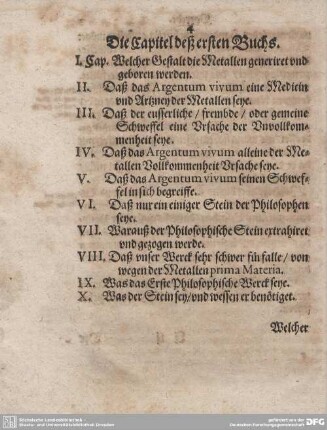 4
Die Capitel deß ersten Buchs.
I. Cap. Welcher Gestalt die Metallen generiret vnd
geboren werden.
II. Daß das Argentum vivum eine Medicin
vnd Artzney der Metallen seye.
III. Daß der eusserliche / frembde / oder gemeine
Schweffel eine Vrsache der Vnvollkom-
menheit seye.
IV. Daß das Argentum vivum alleine der Me-
tallen Vollkommenheit Vrsache seye.
V. Daß das Argentum vivum seinen Schwef-
fel in sich begreiffe.
VI. Daß nur ein einiger Stein der Philosophen
seye.
VII. Warauß der Philosophische Stein extrahiret
vnd gezogen werde.
VIII. Daß vnser Werck sehr schwer fürfalle / von
wegen der Metallen prima Materia.
IX. Was das Erste Philosophische Werck seye.
X. Was der Stein sey / vnd wessen er benötiget.
Welcher
Sächsische Landesbibliothek -
Staats- und Universitätsbibliothek Dresden
gefördert von der
Deutschen Forschungsgemeinschaft
DFG